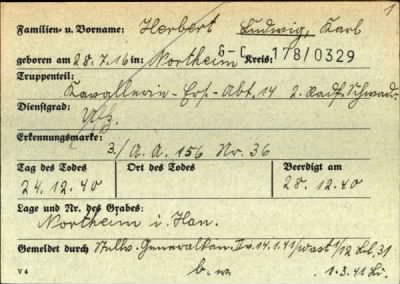 1
Familien- u. Vorname: Herbert Ludwig, Karl
geboren am 28.7.16 in: Northeim Kreis:
G-C 178/0329
Truppenteil:
Kavallerie-Ers.-Abt. 14 2. Radf. Schwadr.
Dienstgrad:
Uffz.
Erkennungsmarke:
3./A.A. 156 Nr. 36
Tag des Todes Ort des Todes Beerdigt am
24.12.40 28.12.40
Lage und Nr. des Grabes:
Northeim i. Han.
Gemeldet durch Stellv. Generalkdo. II v. 14.1.41/Wast 1/12 31
V 4 b.w. 1.3.41